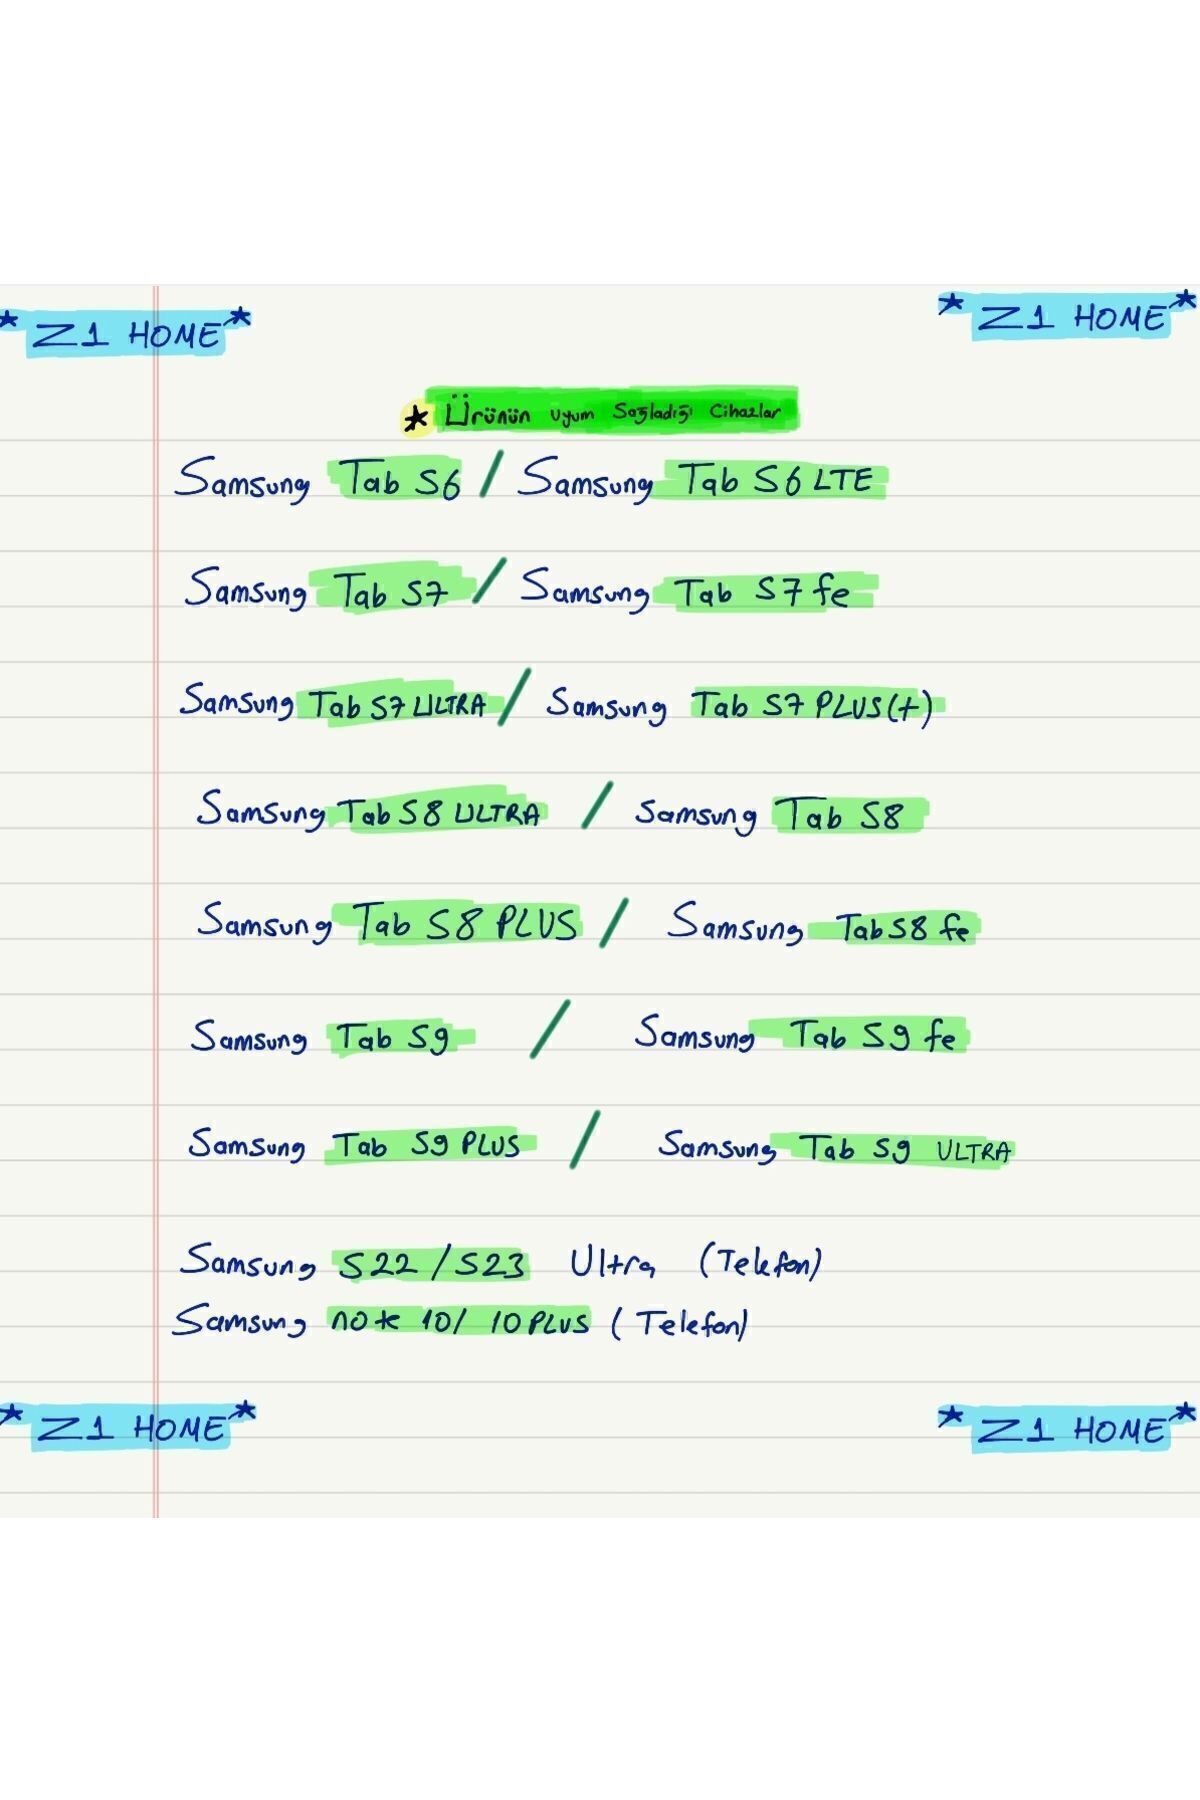 * Z1 HOME *
* Z1 HOME *
* Ürünün uyum Sağladığı Cihazlar
Samsung Tab S6 / Samsung Tab S6 LTE
Samsung Tab S7 / Samsung Tab S7 fe
Samsung Tab S7 ULTRA / Samsung Tab S7 PLUS(+)
Samsung Tab S8 ULTRA / Samsung Tab S8
Samsung Tab S8 PLUS / Samsung Tab S8 fe
Samsung Tab S9 / Samsung Tab S9 fe
Samsung Tab S9 PLUS / Samsung Tab S9 ULTRA
Samsung S22 / S23 Ultra (Telefon)
Samsung note 10/ 10 PLUS (Telefon)
* Z1 HOME *
* Z1 HOME *